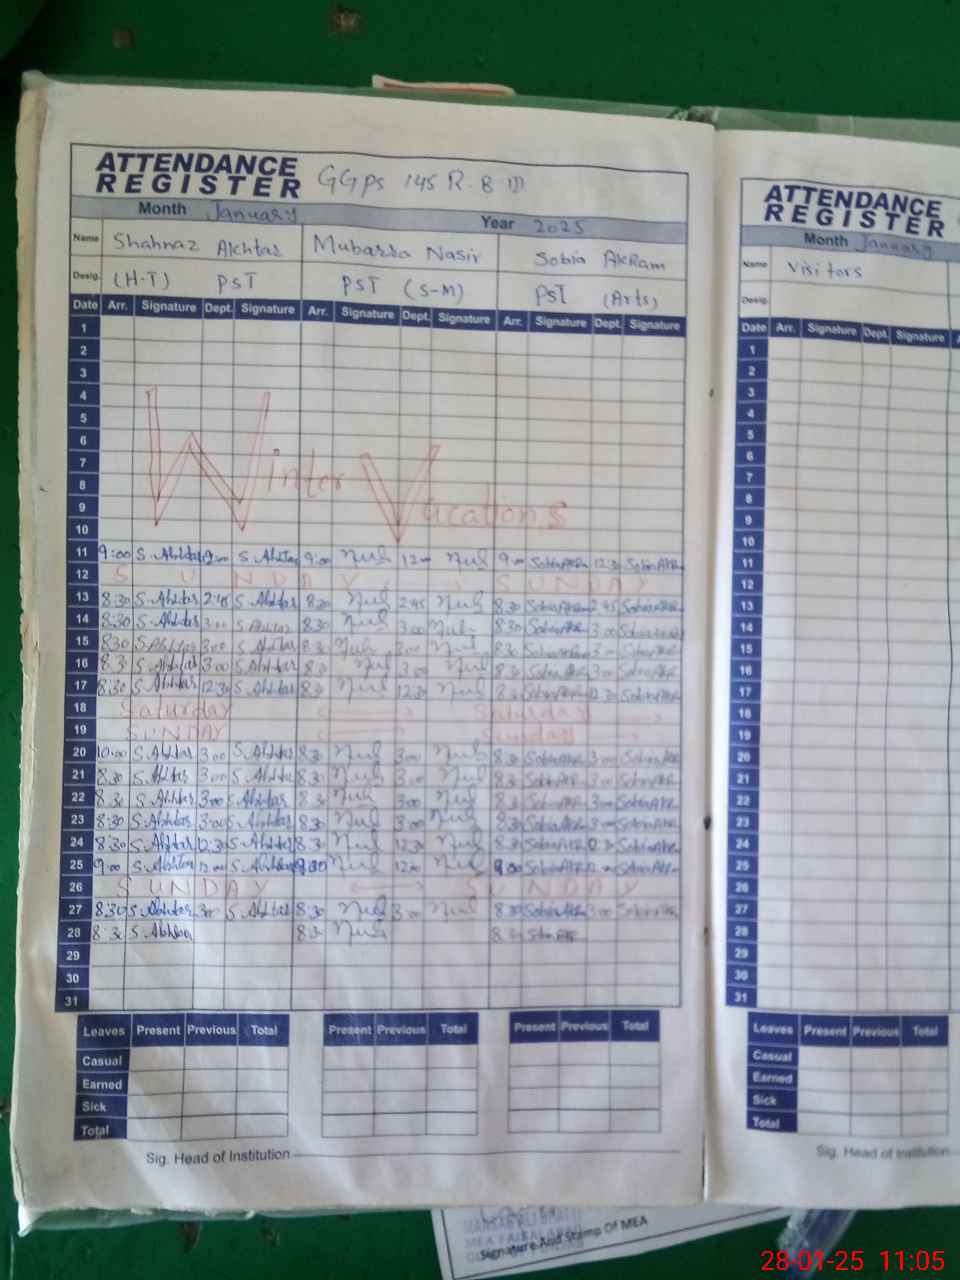 ATTENDANCE
REGISTER
GGPS 145 R.B III
Month January Year 2025
Name Shahnaz Akhtar Mubarra Nasir Sobia Akram
Desig. (H.T) PST PST (S-M) PST (Arts)
Date Arr. Signature Dept. Signature Arr. Signature Dept. Signature Arr. Signature Dept. Signature
1
2
3
4
5
6
7
8
9
10
Winter Vacations
11 9:00 S.Akhtar 12:00 S.Akhtar 9:00 12:00 9:00 Sobia Akr 12:30 Sobia Akr
12 SUNDAY SUNDAY
13 8:30 S.Akhtar 2:45 S.Akhtar 8:30 2:45 8:30 Sobia Akr 2:45 Sobia Akr
14 8:30 S.Akhtar 3:00 S.Akhtar 8:30 3:00 8:30 Sobia Akr 3:00
15 8:30 S.Akhtar 3:00 S.Akhtar 8:30 3:00 8:30 Sobia Akr 3:00 Sobia Akr
16 8:30 S.Akhtar 3:00 S.Akhtar 8:30 3:00 8:30 Sobia Akr 3:00 Sobia Akr
17 8:30 S.Akhtar 12:30 S.Akhtar 8:30 12:30 8:30 Sobia Akr 12:30 Sobia Akr
18 Saturday Saturday
19 SUNDAY Sunday
20 10:00 S.Akhtar 3:00 S.Akhtar 8:30 3:00 8:30 Sobia Akr 3:00 Sobia Akr
21 8:30 S.Akhtar 3:00 S.Akhtar 8:30 3:00 8:30 Sobia Akr 3:00 Sobia Akr
22 8:30 S.Akhtar 3:00 S.Akhtar 8:30 3:00 8:30 Sobia Akr 3:00 Sobia Akr
23 8:30 S.Akhtar 3:00 S.Akhtar 8:30 3:00 8:30 Sobia Akr 3:00 Sobia Akr
24 8:30 S.Akhtar 12:30 S.Akhtar 8:30 12:30 8:30 Sobia Akr 12:30 Sobia Akr
25 9:00 S.Akhtar 12:00 S.Akhtar 12:00 9:00 Sobia Akr 12:00 Sobia Akr
26 SUNDAY SUNDAY
27 8:30 S.Akhtar 3:00 S.Akhtar 8:30 3:00 8:30 Sobia Akr 3:00 Sobia Akr
28 8:30 S.Akhtar 8:30 8:30 Sobia Akr
29
30
31
Leaves Present Previous Total Present Previous Total Present Previous Total
Casual
Earned
Sick
Total
Sig. Head of Institution
ATTENDANCE
REGISTER
Month January
Name Visitors
Desig.
Date Arr. Signature Dept. Signature
1
2
3
4
5
6
7
8
9
10
11
12
13
14
15
16
17
18
19
20
21
22
23
24
25
26
27
28
29
30
31
Leaves Present Previous Total
Casual
Earned
Sick
Total
Sig. Head of Institution
Signature And Stamp Of MEA
28-01-25 11:05